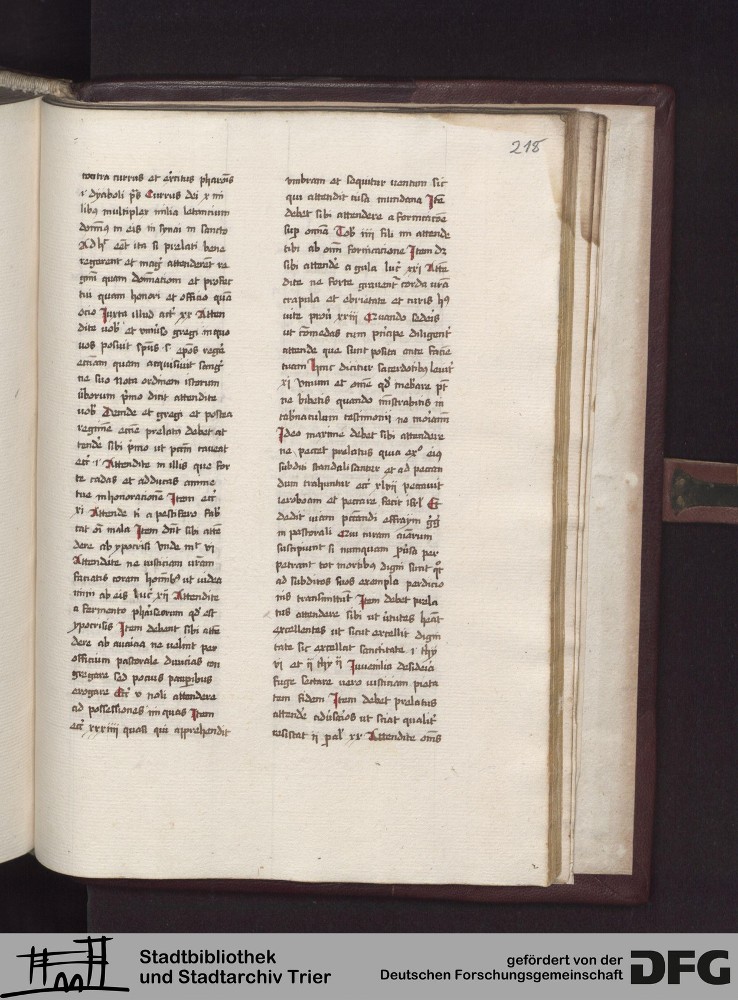 218
contra currus et exercitus pharaonis
i dyaboli ps Currus dei x mi
libus multiplex milia letancium
dominus in eis in synai in sancto
Ad hoc eet ita si prelati bene
regerent et magis attenderent re
gimini quam dominationi et profec
tui quam honori et officio quam
ocio Iuxta illud act xx Atten
dite vobis et vniuerso gregi in quo
vos posuit spus s epos regere
ecciam quam acquisiuit sangui
ne suo Nota ordinem istorum
verborum primo dicit attendite
vobis Deinde et gregi et postea
regimine eccie prelatus debet at
tendere sibi primo ut peccatum caueat
ecci i Attendite in illis que for
te cadas et adducas anime
tue inhonoracionem Item ecci
xi Attende ti a pestifero fab
cat enim mala Item debent sibi atte
dere ab ypocrisi vnde mt vi
Attendite ne iusticiam vestram
faciatis coram hominibus ut videa
mini ab eis luc xii Attendite
a fermento phariseorum quod est
ypocrisis Item debent sibi atte
dere ab auaricia ne velint per
officium pastorale diuicias con
gregare sed pocius pauperibus
erogare Ecci v noli attendere
ad possessiones iniquas Item
ecci xxxiiii quasi qui apprehendit
vmbram et sequitur uentum sic
qui attendit uisa mundana Ite
debet sibi attendere a fornicacione
super omnia Tob iiii fili mi attende
tibi ab omni fornicacione Item debet
sibi attendere a gula luc xxi Atte
dite ne forte grauentur corda vestra
crapula et ebrietate et curis huius
uite prou xxiii Quando sederis
ut comedas cum principe diligenter
attende que sunt posita ante faciem
tuam Hinc dicitur sacerdotibus leuit
xi vinum et omne quod inebriare potest
ne bibetis quando ministrabitis in
tabernaculum testimonii ne moriamini
Ideo maxime debet sibi attendere
ne peccet prelatus quia exemplo eius
subditi scandalisantur et ad peccan
dum trahuntur ecci xlvii peccauit
ieroboam et peccare fecit isrl Et
dedit uiam peccandi effraym gg
in pastorali Qui curam animarum
suscipiunt si numquam peruersa per
petrant tot mortibus digni sunt quot
ad subditos suos exempla perdicio
nis transmittunt Item debet prela
tus attendere sibi ut uirtutes habeat
excellentes ut sicut excellit digni
tate sic excellat sanctitate i thy
vi et ii thy ii Iuuenilia desideria
fuge sectare uero iusticiam pieta
tem fidem Item debet prelatus
attendere aduersarios ut sciat qualiter
resistat ii pal xx Attendite omnes
Stadtbibliothek
und Stadtarchiv Trier
gefördert von der
Deutschen Forschungsgemeinschaft
DFG